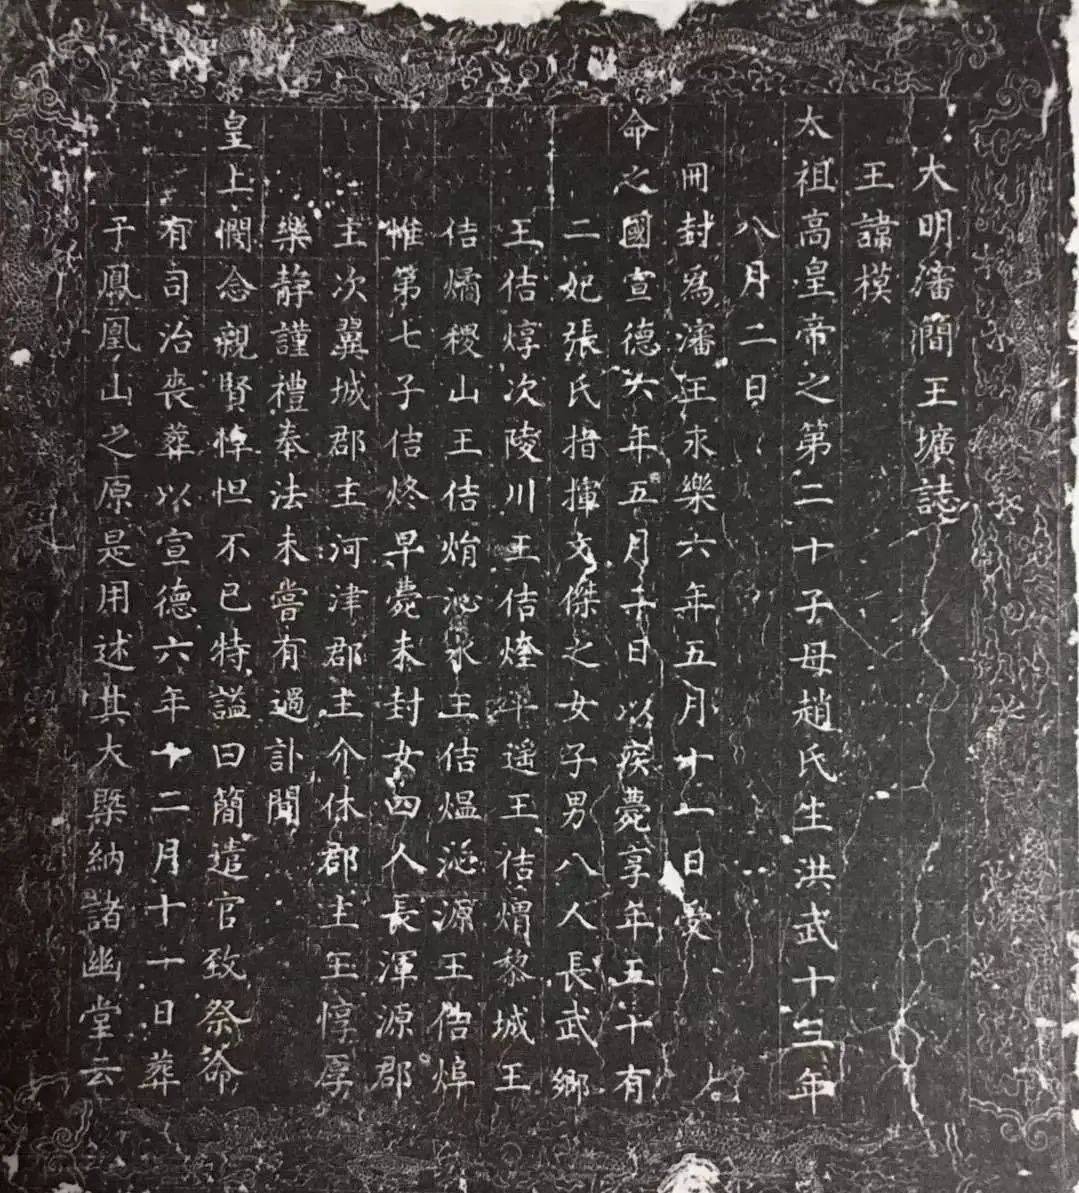 大明瀋簡王壙誌
王諱模
太祖高皇帝之第二十子母趙氏生洪武十三年
八月二日
冊封爲瀋王永樂六年五月十一日受
命之國宣德六年五月日以疾薨享年五十有
二妃張氏指揮文傑之女子男八人長武鄉
王佶焞次陵川王佶煃平遥王佶煟黎城王
佶燏稷山王佶焇沁水王佶熅沁源王佶
惟第七子佶炵早薨未封女四人長渾源郡
主次翼城郡主河津郡主介休郡主王惇厚
樂静謹禮奉法未嘗有過訃聞
皇上憫念親賢悼怛不已特謚曰簡遣官致祭命
有司治喪葬以宣德六年十二月十一日葬
于鳳凰山之原是用述其大槩納諸幽堂云